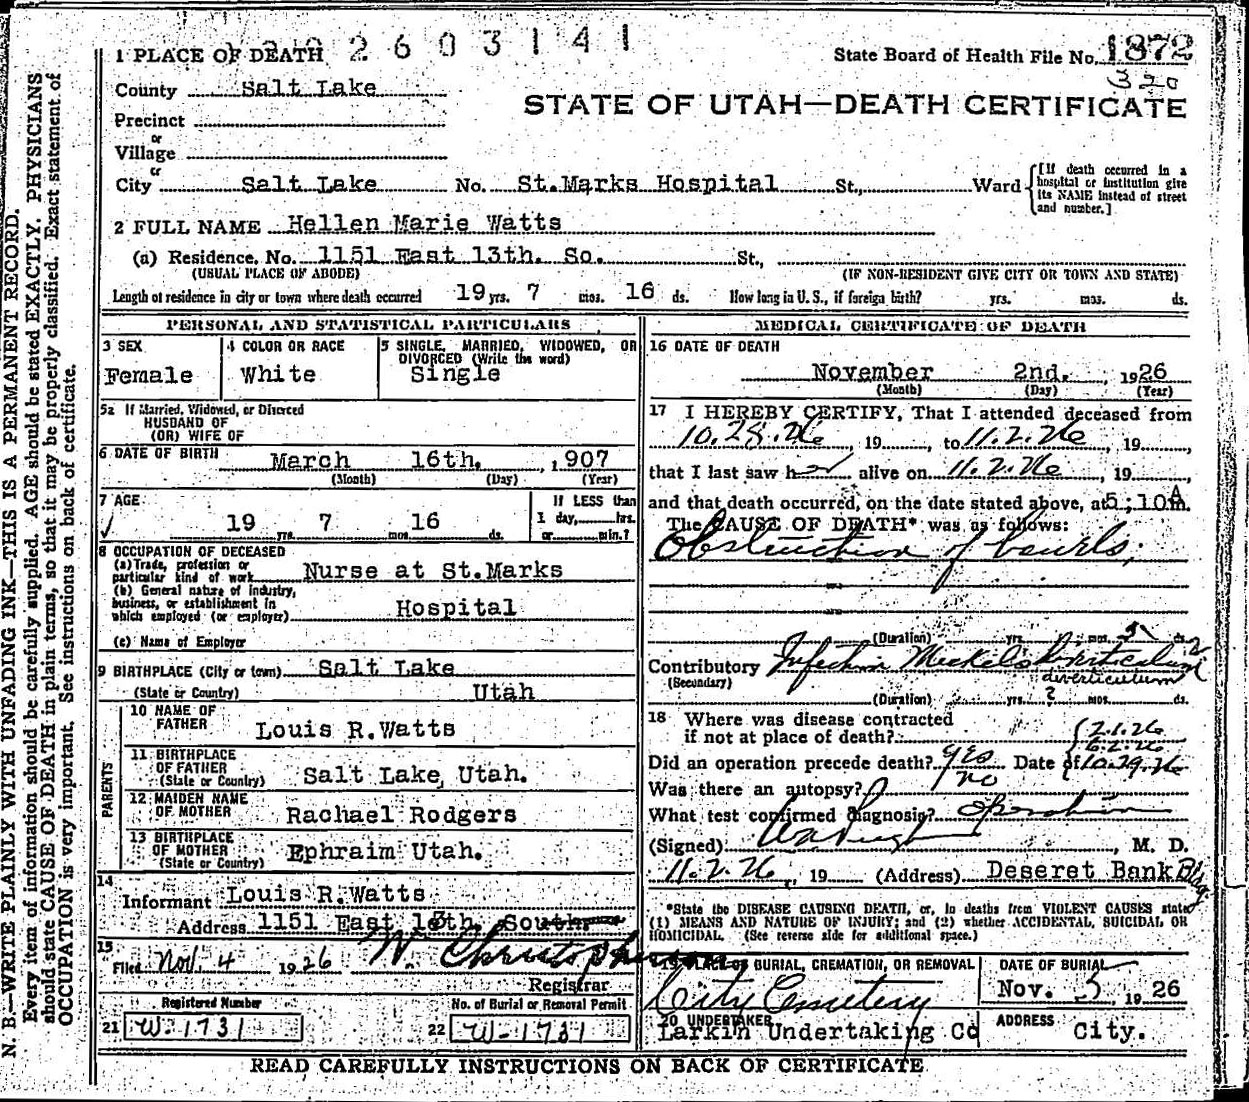 2603141
1 PLACE OF DEATH
State Board of Health File No. 1872
320
County Salt Lake
STATE OF UTAH—DEATH CERTIFICATE
Precinct
or
Village
or
City Salt Lake No. St.Marks Hospital St., Ward
[If death occurred in a hospital or institution give its NAME instead of street and number.]
2 FULL NAME Hellen Marie Watts
(a) Residence, No. 1151 East 13th. So. St.,
(USUAL PLACE OF ABODE) (IF NON-RESIDENT GIVE CITY OR TOWN AND STATE)
Length of residence in city or town where death occurred 19 yrs. 7 mos. 16 ds. How long in U. S., if foreign birth? yrs. mos. ds.
PERSONAL AND STATISTICAL PARTICULARS
3 SEX
Female
4 COLOR OR RACE
White
5 SINGLE, MARRIED, WIDOWED, OR
DIVORCED (Write the word)
Single
5a If Married, Widowed, or Divorced
HUSBAND OF
(OR) WIFE OF
6 DATE OF BIRTH March 16th. , 1907
(Month) (Day) (Year)
7 AGE
19 yrs. 7 mos. 16 ds.
If LESS than
1 day, hrs.
or min.?
8 OCCUPATION OF DECEASED
(a) Trade, profession or
particular kind of work Nurse at St.Marks
(b) General nature of industry,
business, or establishment in
which employed (or employer) Hospital
(c) Name of Employer
9 BIRTHPLACE (City or town) Salt Lake
(State or Country) Utah
PARENTS
10 NAME OF
FATHER Louis R.Watts
11 BIRTHPLACE
OF FATHER
(State or Country) Salt Lake, Utah.
12 MAIDEN NAME
OF MOTHER Rachael Rodgers
13 BIRTHPLACE
OF MOTHER
(State or Country) Ephraim Utah.
14
Informant Louis R.Watts
Address 1151 East 13th. South.
15
Filed Nov. 4 1926 W. Christopherson
Registrar
Registered Number
21 W-1731
No. of Burial or Removal Permit
22 W-1731
MEDICAL CERTIFICATE OF DEATH
16 DATE OF DEATH
November 2nd. , 1926
(Month) (Day) (Year)
17 I HEREBY CERTIFY, That I attended deceased from
10.28.26 , 19 , to 11.2.26 , 19
that I last saw her alive on 11.2.26 , 19
and that death occurred, on the date stated above, at 5;10A m.
The CAUSE OF DEATH* was as follows:
Obstruction of bowels;
(Duration) yrs. mos. 5 ds.
Contributory Infection Meckels Diverticulum
diverticulum
(Secondary)
(Duration) yrs. ? mos. ds.
18 Where was disease contracted
if not at place of death?
2.1.26
6.2.26
Did an operation precede death? yes Date of 10.29.26
Was there an autopsy? no
What test confirmed diagnosis? Operation
(Signed) , M. D.
11.2.26, 19 (Address) Deseret Bank Bldg.
*State the DISEASE CAUSING DEATH, or, in deaths from VIOLENT CAUSES state
(1) MEANS AND NATURE OF INJURY; and (2) whether ACCIDENTAL, SUICIDAL OR
HOMICIDAL. (See reverse side for additional space.)
19 PLACE OF BURIAL, CREMATION, OR REMOVAL
City Cemetery
DATE OF BURIAL
Nov. 5 1926
20 UNDERTAKER
Larkin Undertaking Co
ADDRESS
City.
READ CAREFULLY INSTRUCTIONS ON BACK OF CERTIFICATE
N. B.—WRITE PLAINLY WITH UNFADING INK—THIS IS A PERMANENT RECORD.
Every item of information should be carefully supplied. AGE should be stated EXACTLY. PHYSICIANS
should state CAUSE OF DEATH in plain terms, so that it may be properly classified. Exact statement of
OCCUPATION is very important. See instructions on back of certificate.